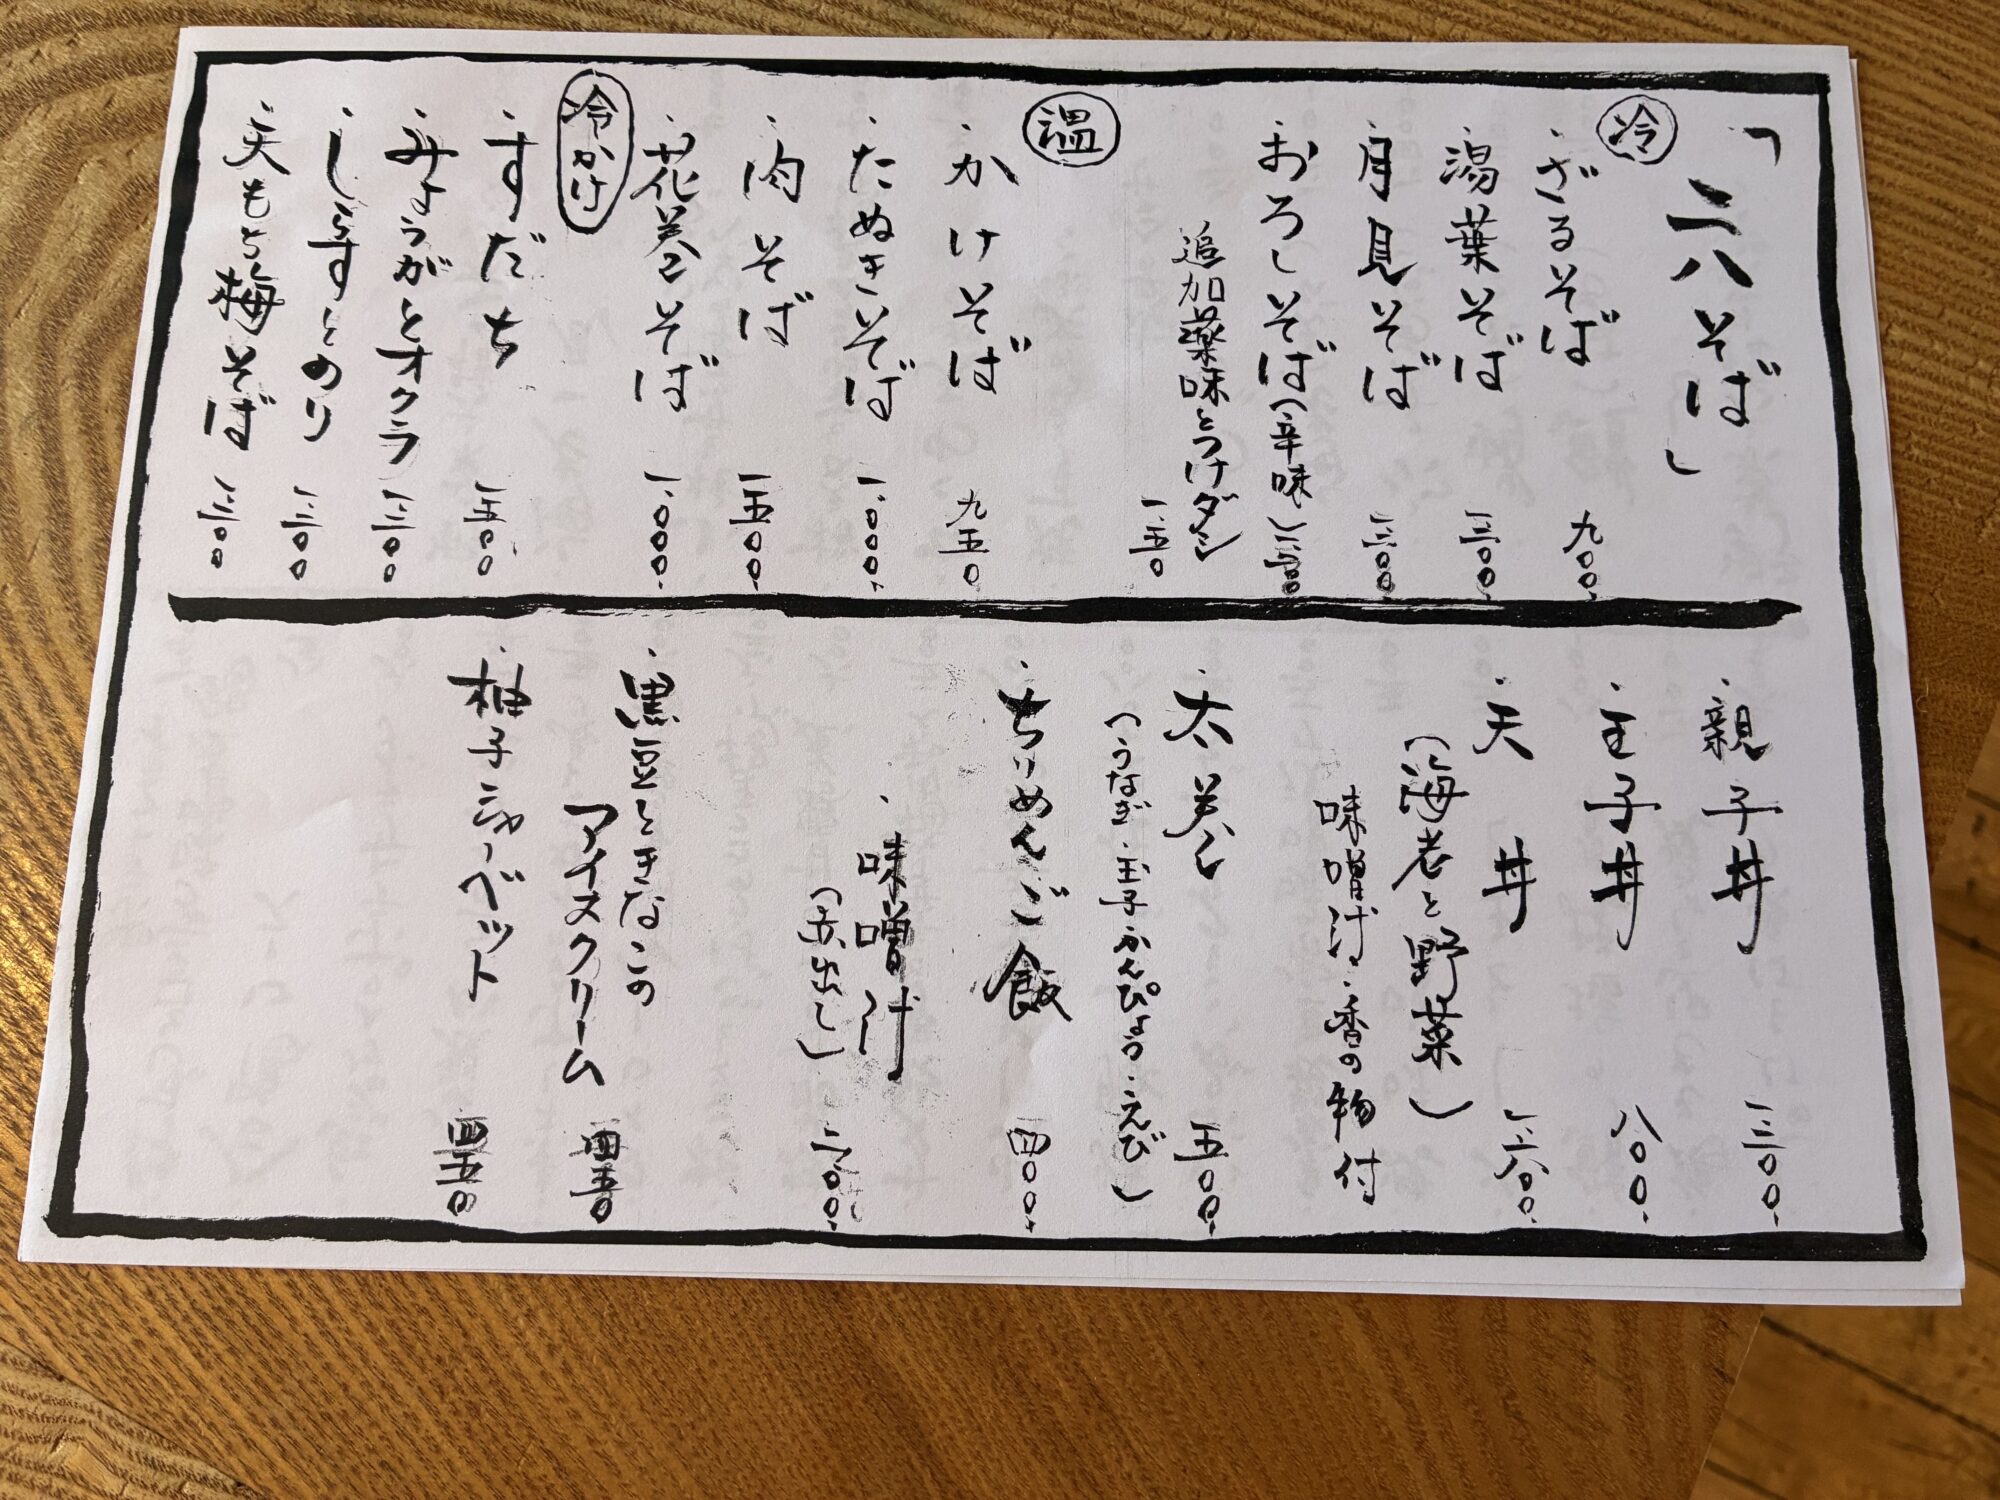 「二八そば」
冷
・ざるそば 九〇〇、
・湯葉そば 一三〇〇、
・月見そば 一三〇〇、
・おろしそば(辛味)
追加薬味とつけダシ 一、五〇
温
・かけそば 九五〇、
・たぬきそば 一、〇〇〇、
・肉そば 一五〇〇、
・花巻そば 一、〇〇〇、
冷かけ
・すだち 一五〇〇
・みょうがとオクラ 一三〇〇
・しらすとのり 一三〇〇
・天もち梅そば 一三〇〇
・親子丼 一三〇〇、
・玉子丼 八〇〇、
・天丼
(海老と野菜)
味噌汁・香の物付
・太巻 五〇〇、
(うなぎ・玉子・かんぴょう・えび)
・ちりめんご飯 四〇〇、
・味噌汁 二〇〇、
(赤出し)
・黒豆ときなこの
アイスクリーム 四五〇
・柚子シャーベット 四五〇